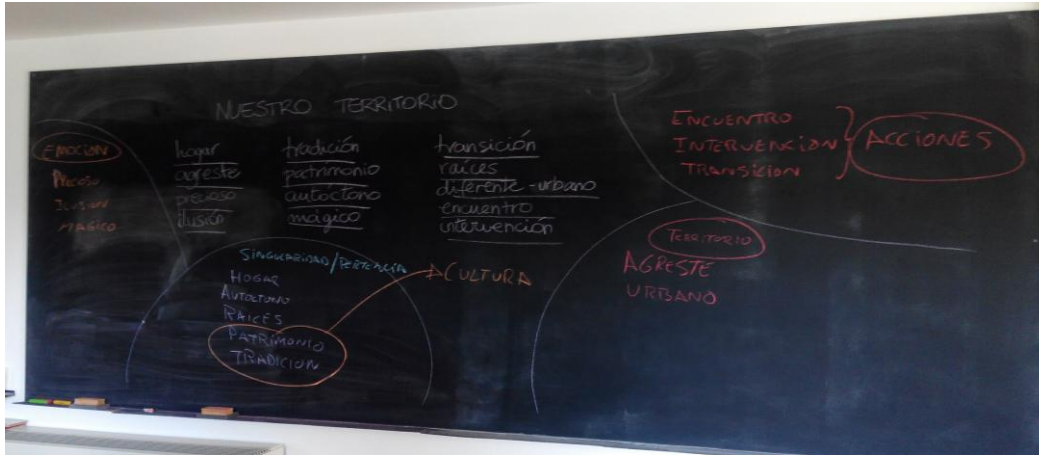 NUESTRO TERRITORIO
EMOCION
PRECIOSO
ILUSION
MAGICO
hogar
agreste
precioso
ilusión
tradición
patrimonio
autóctono
mágico
transición
raíces
diferente - urbano
encuentro
intervención
ENCUENTRO
INTERVENCION
TRANSICION
ACCIONES
SINGULARIDAD/PERTENCIA
HOGAR
AUTOCTONO
RAICES
PATRIMONIO
TRADICION
CULTURA
TERRITORIO
AGRESTE
URBANO